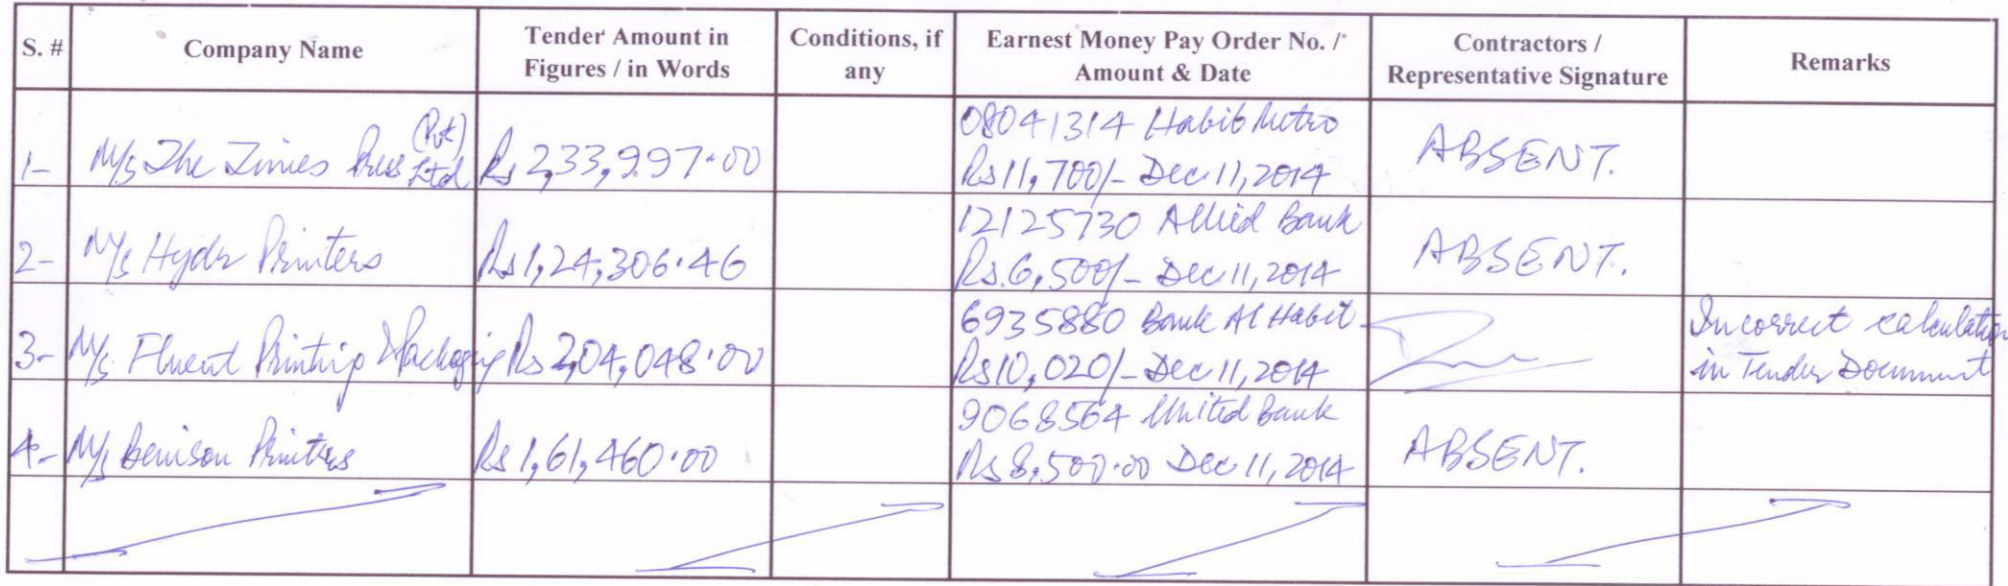 S. # Company Name Tender Amount in Figures / in Words Conditions, if any Earnest Money Pay Order No. / Amount & Date Contractors / Representative Signature Remarks
1- M/s The Times Press (Pvt) Ltd Rs 2,33,997.00 08041314 Habib Metro Rs 11,700/- Dec 11, 2014 ABSENT.
2- M/s Hyder Printers Rs 1,24,306.46 12125730 Allied Bank Rs. 6,500/- Dec 11, 2014 ABSENT.
3- M/s Fluent Printing & Packaging Rs 2,04,048.00 6935880 Bank Al Habib Rs 10,020/- Dec 11, 2014 Incorrect calculation in Tender Document
4- M/s Benison Printers Rs 1,61,460.00 9068564 United Bank Rs 8,500.00 Dec 11, 2014 ABSENT.